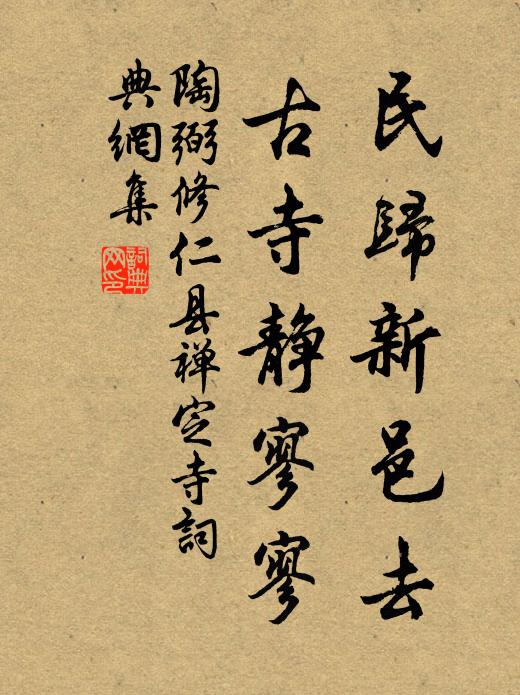 民歸新邑去
古寺靜寥寥
陶弼修仁县禅定寺詞
典網集
詞典网印